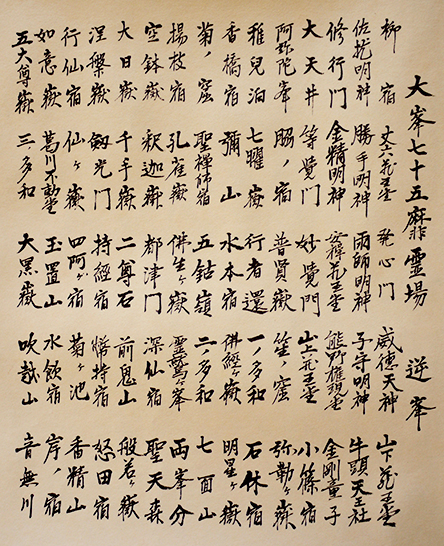 大峯七十五靡霊場 逆峯
柳宿 丈六蔵王堂 発心門 威徳天神 山下蔵王堂
佐抛明神 勝手明神 雨師明神 子守明神 牛頭天王社
修行門 金精明神 安禅蔵王堂 熊野権現堂 金剛童子
大天井 等覺門 妙覺門 山上蔵王堂 小篠宿
阿弥陀峯 脇ノ宿 普賢嶽 笙ノ窟 弥勒ヶ嶽
稚兒泊 七曜嶽 行者還 一ノ多和 石休宿
香橘宿 彌山 水本宿 佛経ヶ嶽 明星ヶ嶽
菊ノ窟 聖禅師宿 五鈷嶺 二ノ多和 七面山
揚枝宿 孔雀嶽 佛生ヶ嶽 霊鷲ヶ峯 両峯分
空鉢嶽 釈迦嶽 都津門 深仙宿 聖天森
大日嶽 千手嶽 二尊石 前鬼山 般若ヶ嶽
涅槃嶽 剱光門 持経宿 持宿 怒田宿
行仙宿 仙ヶ嶽 四阿ヶ宿 菊ヶ池 香精山
如意嶽 葛川不動堂 玉置山 水飲宿 岸ノ宿
五大尊嶽 三多和 大黒ヶ嶽 吹越山 音無川